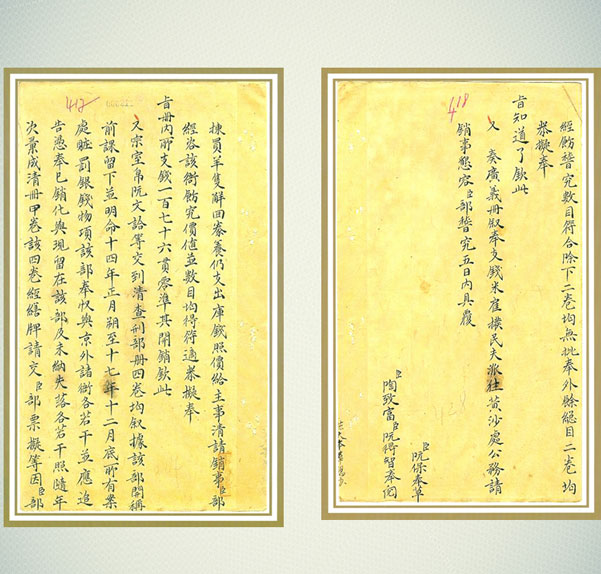 418
經飭替究數目符合除下二卷均無批奉外餘總目二卷均
恭擬奉
旨知道了欽此
又 奏廣義冊叙奉支錢米雇樸民夫派往黃沙處公務請
銷事懇容臣部替究五日內具覆
臣阮保奉草
臣陶致富臣阮得智奉閱
417
揀員羊隻解回豢養仍支出庫錢照價給主事清請銷事臣部
經咨該衙飭究價值並數目均得符適恭擬奉
旨冊內所支錢一百七十六貫零準其開銷欽此
又宗室帛阮文詥等交到清查刑部冊四卷均叙據該部開稱
前課留下並明命十四年正月朔至十七年十二月底所有案
處贓罰銀錢物項該部奉收與京外諸衙各若干並應追
告憑奉已銷化與現留在該部及未納失落各若干照隨年
次彙成清冊甲卷該四卷經繕牌請交臣部票擬等因臣部